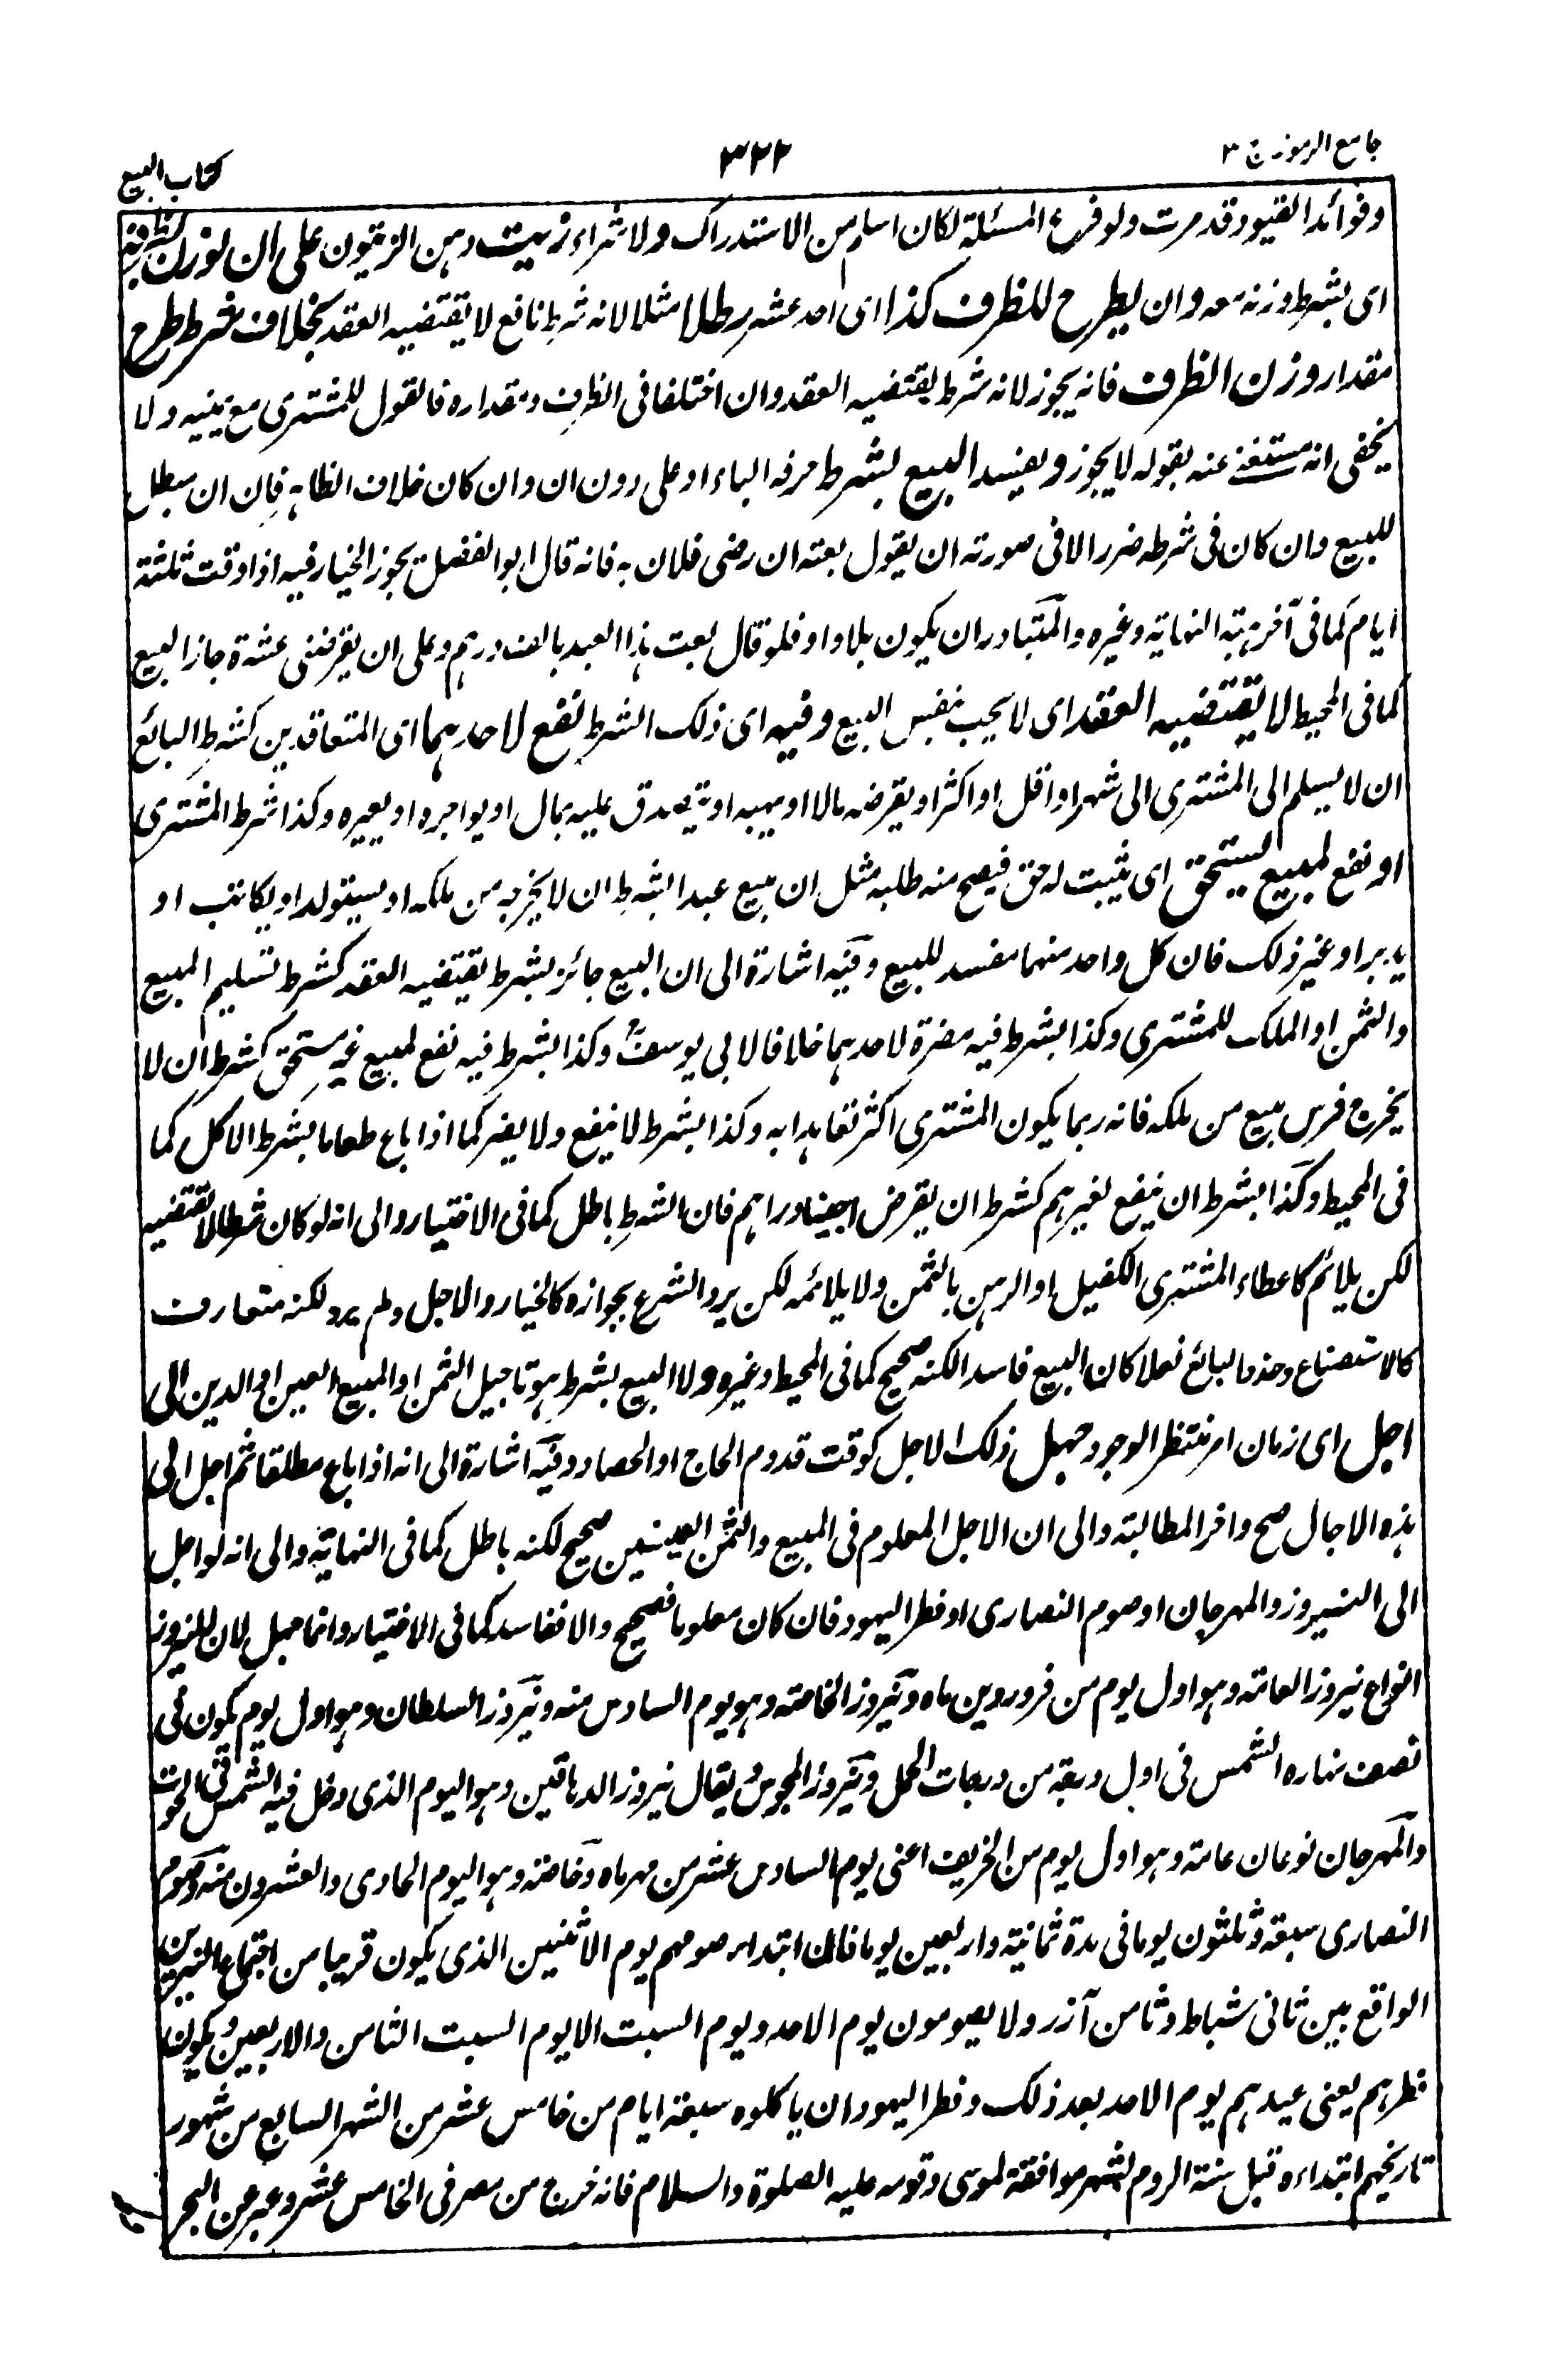 جامع الرموز۔ ج ۳
۳۲۲
كتاب البيع
وفوائد القيود قد مرت ولو فرع المسئلة لكان اسلم من الاستدراك ولا شراء زيت دهن الزيتون على ان يوزن بظرفه
اى بشرط وزنه معه وان يطرح للظرف كذا اى احد عشر رطلا مثلا لانه شرط نافع لا يقتضيه العقد بخلاف شرط طرح
مقدار وزن الظرف فانه يجوز لانه شرط يقتضيه العقد وان اختلفا فى الظرف ومقداره فالقول للمشترى مع يمينه ولا
يخفى انه مستغن عنه بقوله لا يجوز ويفسد البيع بشرط حرفه الباء او على دون ان وان كان خلاف الظاهر فان ان مبطل
للبيع وان كان فى شرطه ضرر الا فى صورته ان يقول بعته ان رضى فلان به فانه قال ابو الفضل يجوز الخيار فيه اذا وقت ثلثة
ايام كما فى آخر هبة النهاية وغيره والمتبادر ان يكون بلا واو فلو قال بعت هذا العبد بالف درهم وعلى ان يقرضنى عشرة جاز البيع
كما فى المحيط لا يقتضيه العقد اى لا يجب بنفس البيع وفيه اى ذلك الشرط نفع لاحدهما اى المتعاقدين كشرط البائع
ان لا يسلم الى المشترى الى شهر او اقل او اكثر او يقرضه مالا او يهبه او يتصدق عليه بمال او يواجره او يعيره وكذا شرط المشترى
او نفع لمبيع يستحق اى يثبت له حق فيصح منه طلبه مثل ان يبيع عبدا بشرط ان لا يخرجه من ملكه او يستولد او يكاتب او
يدبر او غير ذلك فان كل واحد منهما مفسد للبيع وفيه اشارة الى ان البيع جائز بشرط يقتضيه العقد كشرط تسليم المبيع
والثمن او الملك للمشترى وكذا بشرط فيه مضرة لاحدهما خلافا لابى يوسف وكذا بشرط فيه نفع لمبيع غير مستحق كشرط ان لا
يخرج فرس بيع من ملكه فانه ربما يكون المشترى اكثر تعاهدا به وكذا بشرط لا ينفع ولا يضر كما اذا باع طعاما بشرط الاكل كما
فى المحيط وكذا بشرط ان ينفع لغيرهم كشرط ان يقرض اجنبيا دراهم فان الشرط باطل كما فى الاختيار والى انه لو كان شرطا لا يقتضيه
لكن يلائم كاعطاء المشترى الكفيل او الرهن بالثمن ولا يلائمه لكن يرد الشرع بجوازه كالخيار والاجل ولم يرد لكنه متعارف
كالاستصناع وحذو البائع نعلا كان البيع فاسدا لكنه صحيح كما فى المحيط وغيره ولا البيع بشرط هو تاجيل الثمن او المبيع العين او الدين الى
اجل اى زمان امر منتظر الوجود جهل ذلك الاجل كوقت قدوم الحاج او الحصاد وفيه اشارة الى انه اذا باع مطلقا ثم اجل الى
هذه الاجال صح واخر المطالبة والى ان الاجل المعلوم فى المبيع والثمن العينين صحيح لكنه باطل كما فى النهاية والى انه لو اجل
الى النيروز والمهرجان او صوم النصارى او فطر اليهود فان كان معلوما فصحيح والا ففاسد كما فى الاختيار وانما جهل لان للنيروز
انواع نيروز العامة وهو اول يوم من فروردين ماه ونيروز الخاصة وهو يوم السادس منه ونيروز السلطان وهو اول يوم يكون فى
نصف نهاره الشمس فى اول درجة من درجات الحمل ونيروز المجوس ويقال نيروز الدهاقين وهو اليوم الذى دخل فيه الشمس فى الحوت
والمهرجان نوعان عامة وهو اول يوم من الخريف اعنى يوم السادس عشر من مهرماه وخاصة وهو اليوم الحادى والعشرون منه وصوم
النصارى سبعة وثلثون يوما فى مدة ثمانية واربعين يوما فان ابتداء صومهم يوم الاثنين الذى يكون قريبا من اجتماع النيرين
الواقع بين ثانى شباط وثامن آزر ولا يصومون يوم الاحد ويوم السبت الا يوم السبت الثامن والاربعين ويكون
فطرهم يعنى عيدهم يوم الاحد بعد ذلك وفطر اليهود ان ياكلوه سبعة ايام من خامس عشر من الشهر السابع من شهور
تاريخهم ابتداءه قبل سنة الروم لشهر موافقة لموسى وقومه عليه الصلوة والسلام فانه خرج من مصر فى الخامس عشر وعبر عن البحر